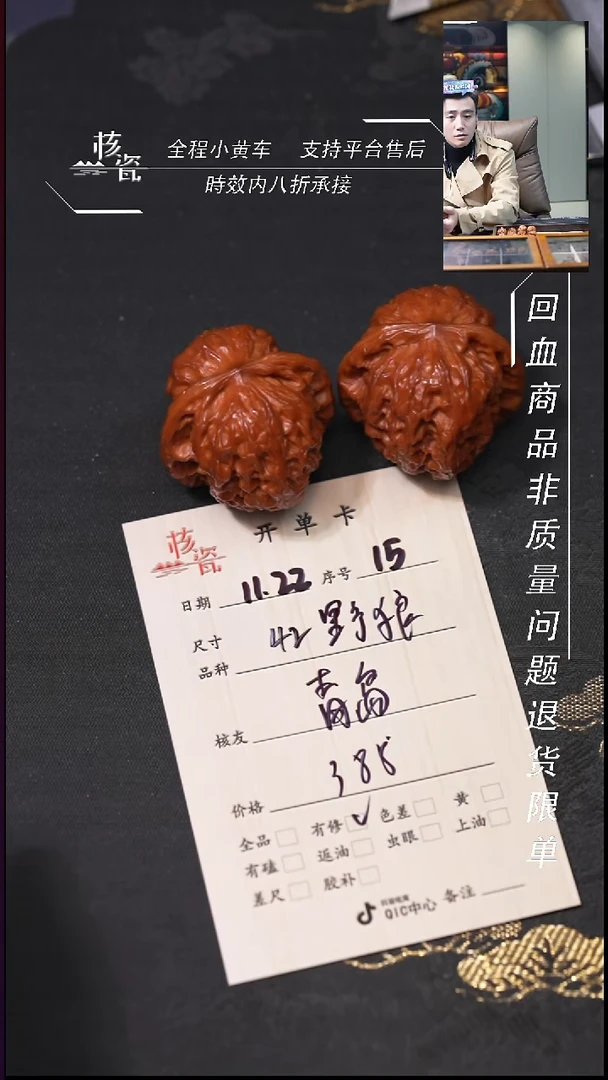 核瓷
全程小黄车 支持平台售后
時效内八折承接
回血商品非质量问题退货限单
核瓷
开单卡
日期 11.22 序号 15
尺寸 42野狼
品种
核友 青岛
价格 385
全品 有修 ✓ 色差 黄
有磕 返油 虫眼 上油
差尺 胶补
抖音电商
QIC中心 备注